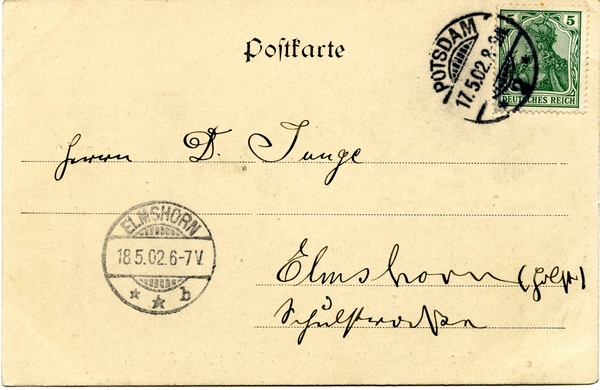 Postkarte
POTSDAM
17.5.02.8-9N
* 2 *
5 5
DEUTSCHES REICH
Herrn D. Junge
ELMSHORN
18.5.02.6-7V.
* * b
Elmshorn (Holst)
Schulstraße